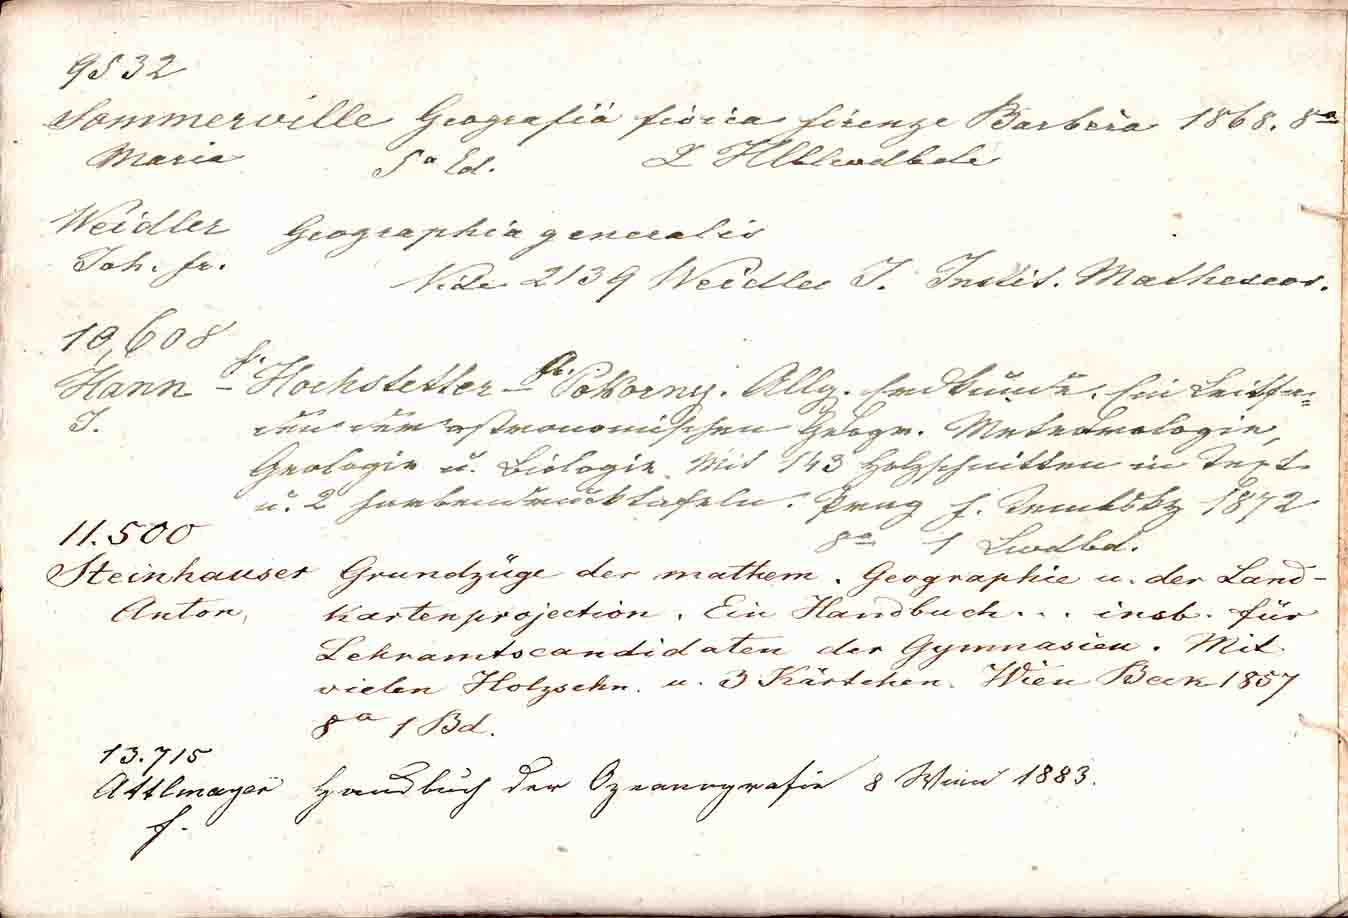 9532
Sommerville Geografia fisica firenze Barbèra 1868. 8º
Maria 5ª Ed. 2 Hlblwdbde
Weidler Geographia generalis
Joh. fr. Vide 2139 Weidler J. Instit. Matheseos.
10,608
Hann – f. Hochstetter – A. Pokorny. Allg. Erdkunde. Ein Leitfa=
J. den der astronomischen Geogr. Meteorologie,
Geologie u. Biologie. Mit 143 Holzschnitten in Text
u. 2 Farbendrucktafeln. Prag f. Tempsky 1872
8º 1 Lwdbd.
11.500
Steinhauser Grundzüge der mathem. Geographie u. der Land-
Anton, kartenprojection. Ein Handbuch... insb. für
Lehramtscandidaten der Gymnasien. Mit
vielen Holzschn. u. 3 Kärtchen. Wien Beck 1857
8º 1 Bd.
13.715
Attlmayer Handbuch der Ozeanografie 8 Wien 1883.
f.